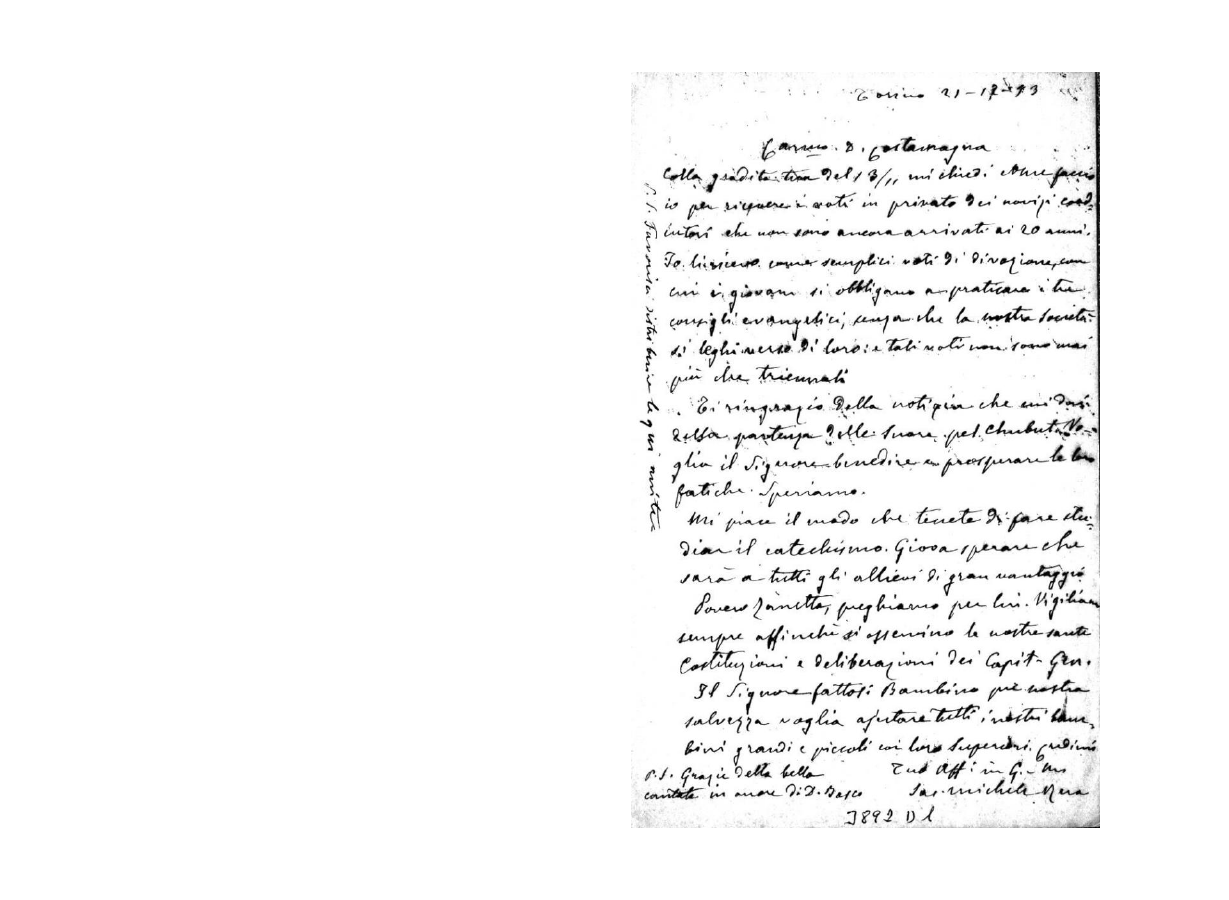 Torino 21-12-93
Carmo D. Costamagna
Colla gradita tua del 13/11 mi chiedi come faccio
io per ricevere i voti in privato dei novizi coad-
iutori che non sono ancora arrivati ai 20 anni.
Io li ricevo come semplici voti di divozione, con
cui i giovani si obbligano a praticare i tre
consigli evangelici, senza che la nostra Società
si leghi verso di loro: e tali voti non sono mai
più che triennali
Ti ringrazio della notizia che mi dai
della partenza delle Suore pel Chubut. Vo-
glia il Signore benedire e prosperare le loro
fatiche. Speriamo.
Mi piace il modo che tenete di fare stu-
diar il catechismo. Giova sperare che
sarà a tutti gli allievi di gran vantaggio
Povero Zanetta, preghiamo per lui. Vigiliamo
sempre affinchè si osservino le nostre sante
Costituzioni e deliberazioni dei Capit. Gen.
Il Signore fattosi Bambino per nostra
salvezza voglia ajutare tutti i nostri bam-
bini grandi e piccoli coi loro Superiori.
Tuo Aff: in G. e M.
Sac. Michele Rua
P.S. Grazie della bella
cantata in onore di D. Bosco
P.S. Favorisci distribuire le qui unite
3892 D 1